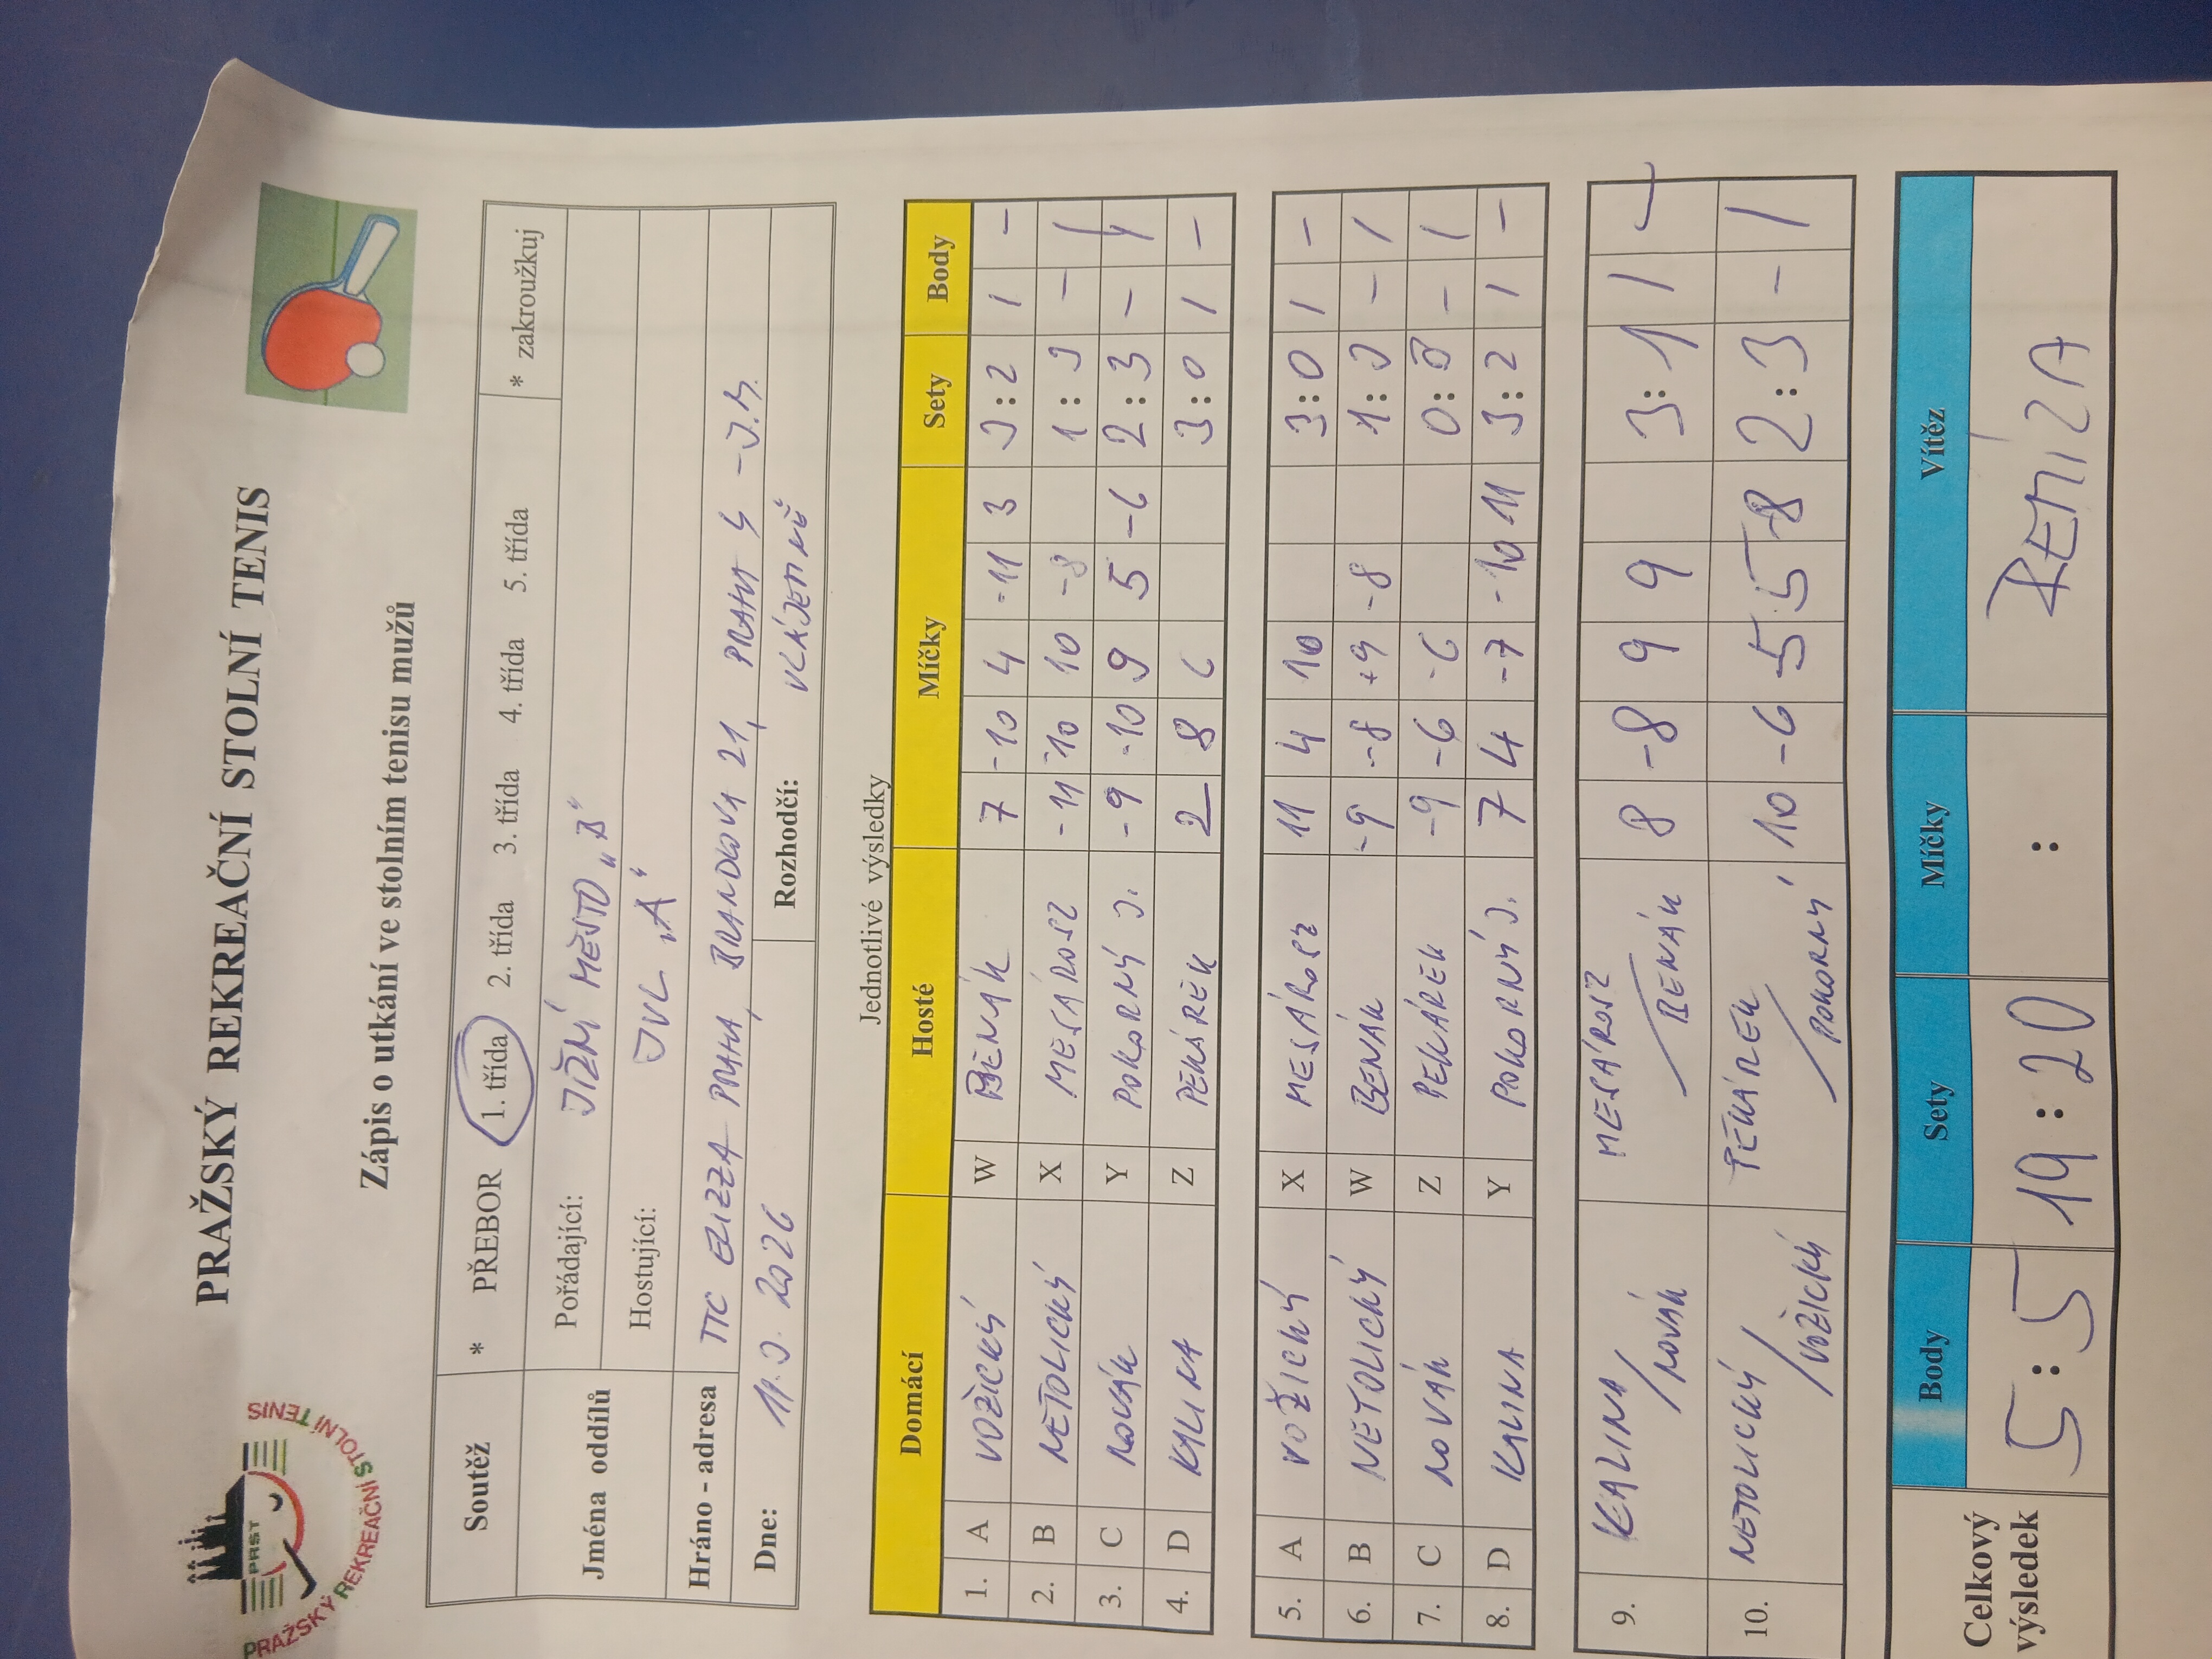 PRAŽSKÝ REKREAČNÍ STOLNÍ TENIS
PRST
PRAŽSKÝ REKREAČNÍ STOLNÍ TENIS
Zápis o utkání ve stolním tenisu mužů
Soutěž * PŘEBOR 1. třída 2. třída 3. třída 4. třída 5. třída * zakroužkuj
Jména oddílů Pořádající: JIŽNÍ MĚSTO „B"
Hostující: JVL „A"
Hráno - adresa TTC ELIZZA PRAHA, BRANDLOVA 21, PRAHA
Dne: 11.3.2026 Rozhodčí: VZÁJEMNĚ
Jednotlivé výsledky
Domácí Hosté Míčky Sety Body
1. A VOŽICKÝ W BENÁK 7 -10 4 -11 3 3:2 1 -
2. B NETOLICKÝ X MESÁROSZ -11 -10 10 -8 1:3 - 1
3. C NOVÁK Y POKORNÝ J. -9 -10 9 5 -6 2:3 - 1
4. D KALINA Z PEKÁREK 2 8 6 3:0 1 -
5. A VOŽICKÝ X MESÁROSZ 11 4 10 3:0 1 -
6. B NETOLICKÝ W BENÁK -9 -8 +9 -8 1:3 - 1
7. C NOVÁK Z PEKÁREK -9 -6 -6 0:3 - 1
8. D KALINA Y POKORNÝ J. 7 4 -7 -10 11 3:2 1 -
9. KALINA / NOVÁK MESÁROSZ / BENÁK 8 -8 9 9 3:1 1 -
10. NETOLICKÝ / VOŽICKÝ PEKÁREK / POKORNÝ 10 -6 -5 5 -8 2:3 - 1
Body Sety Míčky Vítěz
Celkový výsledek 5:5 19:20 : REMÍZA